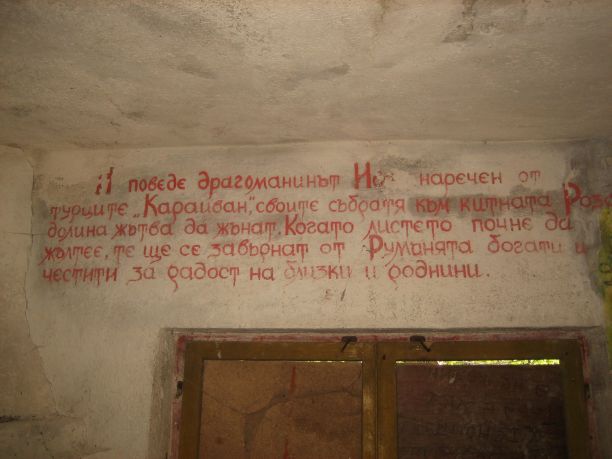 И поведе драгоманинът наречен от
турците „Караиван", своите събратя към китната Розо
долина жътва да жънат. Когато листето почне да
жълтее, те ще се завърнат от Руманята богати и
честити за радост на близки и роднини.